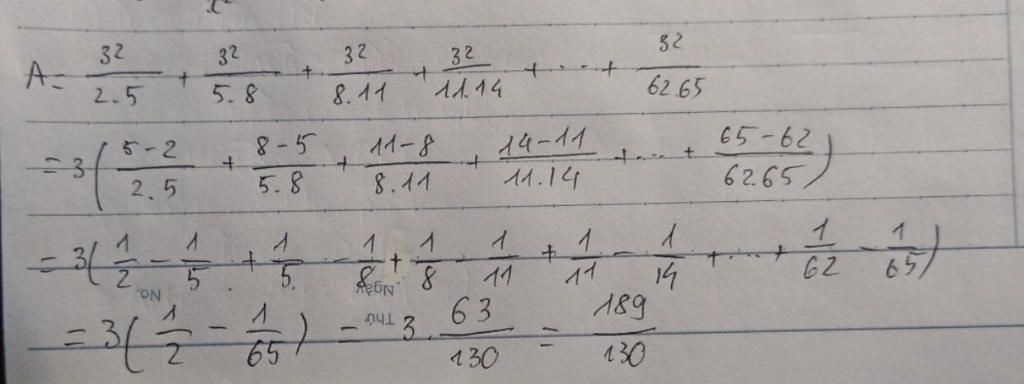 x²
A = 3²/2.5 + 3²/5.8 + 3²/8.11 + 3²/11.14 + ... + 3²/62.65
= 3(5-2/2.5 + 8-5/5.8 + 11-8/8.11 + 14-11/11.14 + ... + 65-62/62.65)
= 3(1/2 - 1/5 + 1/5 - 1/8 + 1/8 - 1/11 + 1/11 - 1/14 + ... + 1/62 - 1/65)
No. Ngày
Thứ
= 3(1/2 - 1/65) = 3. 63/130 = 189/130